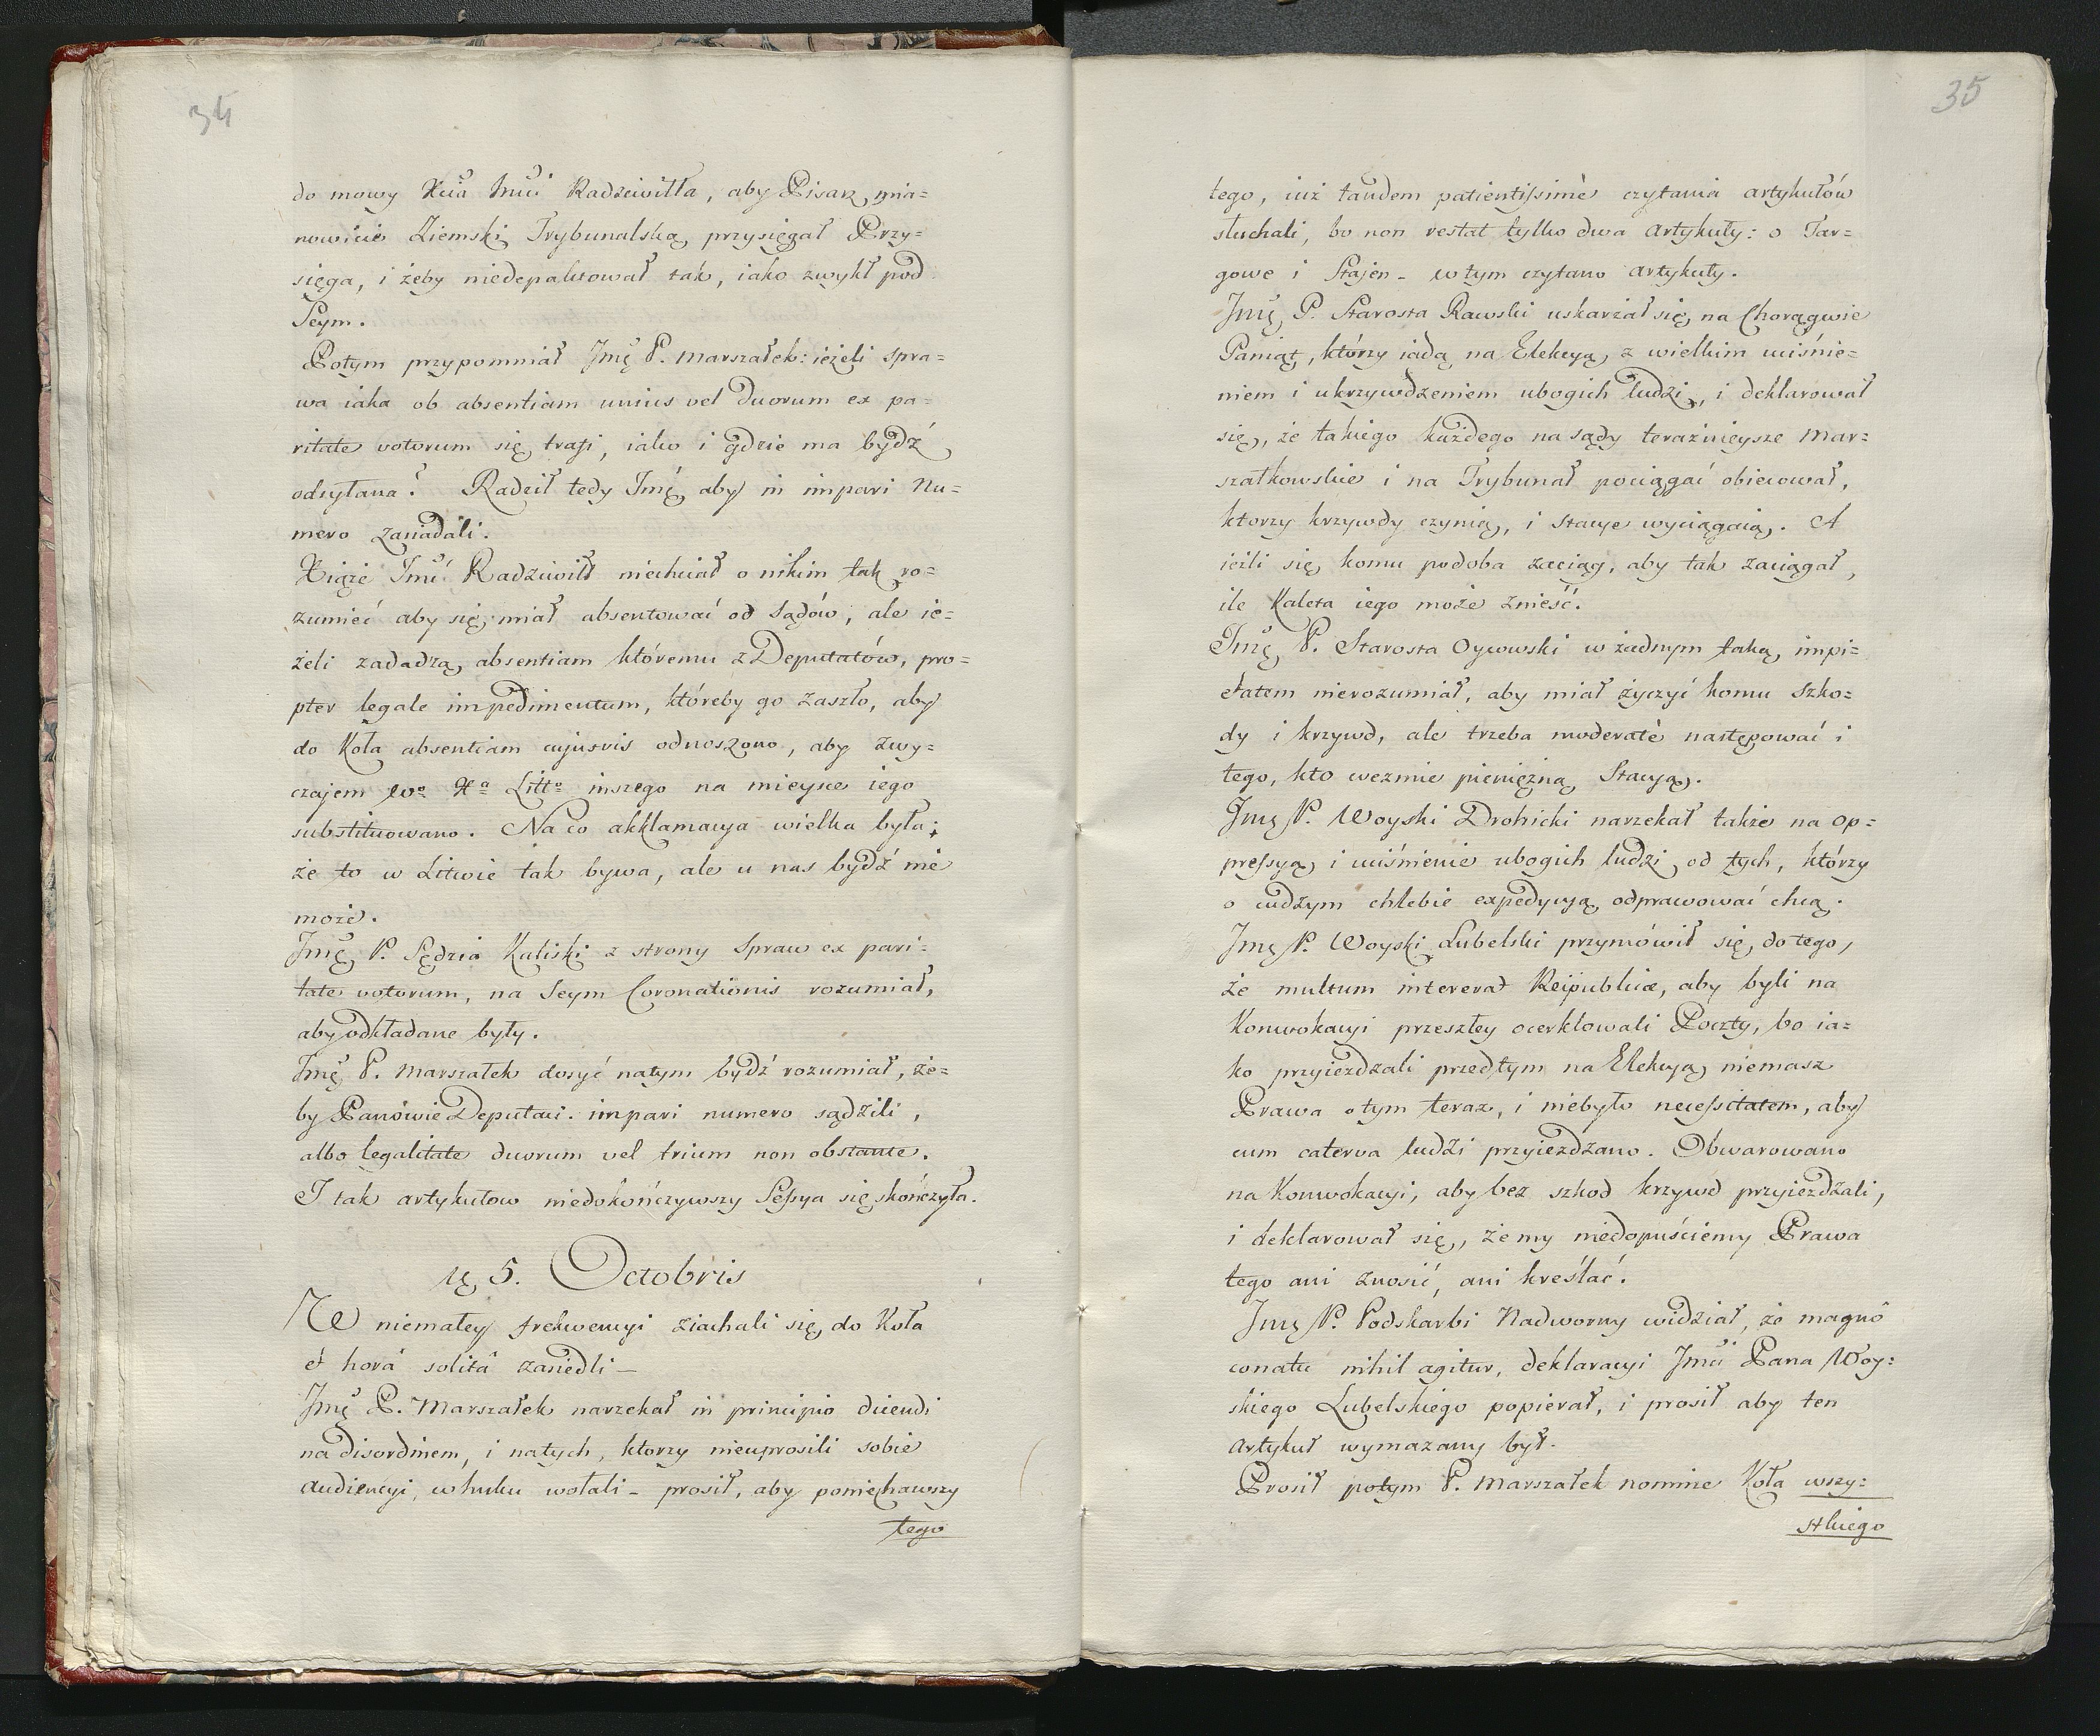 34
do mowy Xcia Jmci Radziwiłła, aby Pisarz, mia=
nowicie Ziemski Trybunalską, przysięgał Przy=
sięgą, i żeby niedepaktował tak, iako zwykł pod
Seym.
Potym przypomniał Jmę P. Marszałek: ieżeli spra=
wa iaka ob absentiam unius vel duorum ex pa=
ritate votorum się trafi, iako i gdzie ma bydź
odsyłana? Radził tedy Jmę, aby in impari Nu=
mero zasiadali.
Xiąże Jmć Radziwiłł niechciał o nikim tak ro=
zumieć aby się miał absentować od Sądów, ale ie=
żeli zadadzą absentiam któremu z Deputatów, pro=
pter legale impedimentum, któreby go zaszło, aby
do Koła absentiam cujusvis odnoszono, aby zwy=
czajem Wo Xa Litto inszego na mieysce iego
substituowano. Na co akklamacya wielka była;
że to w Litwie tak bywa, ale u nas bydź nie
może.
Jmę P. Sędzia Kaliski z strony Spraw ex pari=
tate votorum, na Seym Coronationis rozumiał,
aby odkładane były.
Jmę P. Marszałek dosyć natym bydź rozumiał, że=
by Panowie Deputaci impari numero sądzili,
albo legalitate duorum vel trium non obstante.
I tak artykułow niedokończywszy Sessya się skończyła.
5. Octobris
W niemałey frekwencyi ziachali się do Koła
et horâ solitâ zasiedli_
Jmę P. Marszałek narzekał in principio dicendi
na disordinem, i natych, ktorzy nieuprosili sobie
audiencyi, w huku wołali_ prosił, aby poniechawszy
tego
35
tego, iuż tandem patientissimè czytania artykułów
słuchali, bo non restat tylko dwa Artykuły: o Tar=
gowe i Stajen_ w tym czytano artykuły.
Jmę P. Starosta Rawski uskarżał się na Chorągwie
Paniąt, którzy iadą na Elekcyą z wielkim uciśnie=
niem i ukrzywdzeniem ubogich ludzi, i deklarował
się, że takiego każdego na sądy teraźnieysze Mar=
szałkowskie i na Trybunał pociągać obiecował,
ktorzy krzywdy czynią, i stacye wyciągaią. A
ieżli się komu podoba zaciąg, aby tak zaciągał,
ile Kaleta iego może znieść.
Jmę P. Starosta Oycowski w żadnym taką impi=
etatem nierozumiał, aby miał życzyć komu szko=
dy i krzywd, ale trzeba moderatè następować i
tego, kto wezmie pieniężną Stacyą.
Jmę P. Woyski Drohicki narzekał także na op=
pressyą i uciśnienie ubogich ludzi, od tych, którzy
o cudzym chlebie expedycyą odprawować chcą.
Jmę P. Woyski Lubelski przymówił się do tego,
że multum intererat Reipublicæ, aby byli na
Konwokacyi przeszłey ocerklowali Poczty, bo ia=
ko przyieżdzali przedtym na Elekcyą niemasz
Prawa o tym teraz, i niebyło necessitatem, aby
cum caterva ludzi przyieżdzano. Obwarowano
na Konwokacyi, aby bez szkod krzywd przyieżdżali,
i deklarował się, że my niedopuściemy Prawa
tego ani znosić, ani kreślać.
Jmę P. Podskarbi Nadworny widział, że magnô
conatu nihil agitur, deklaracyi Jmci Pana Woy:
skiego Lubelskiego popierał, i prosił aby ten
Artykuł wymazany był.
Prosił potym P. Marszałek nomine Koła wszy=
stkiego